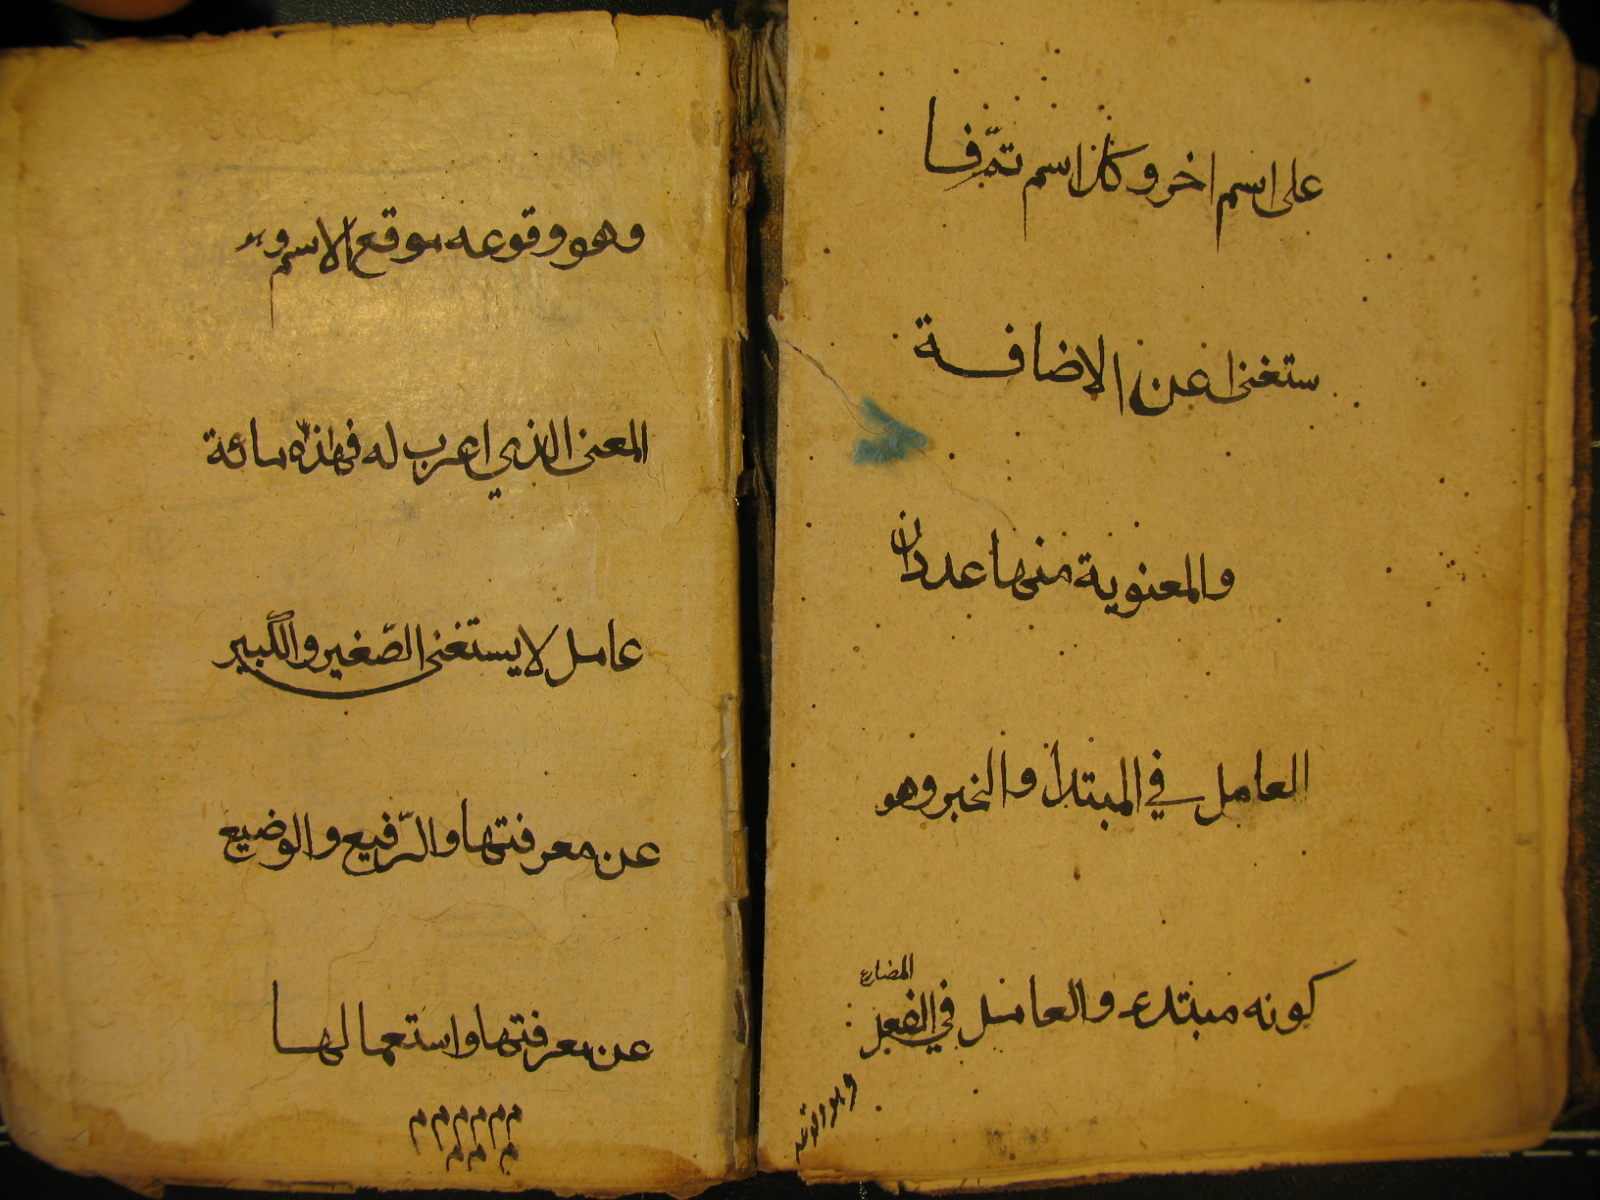 على اسم اخر وكل اسم تمّ فا
ستغنى عن الاضافة
والمعنوية منها عددان
العامل في المبتدا والخبر وهو
كونه مبتدء والعامل في الفعل
المضارع
وهو وقوعه
وهو وقوعه موقع الاسم و
المعنى الذي اعرب له فهذه مائة
عامل لا يستغنى الصّغير والكبير
عن معرفتها والرّفيع والوضيع
عن معرفتها واستعمالها
م م م م م م
م م م